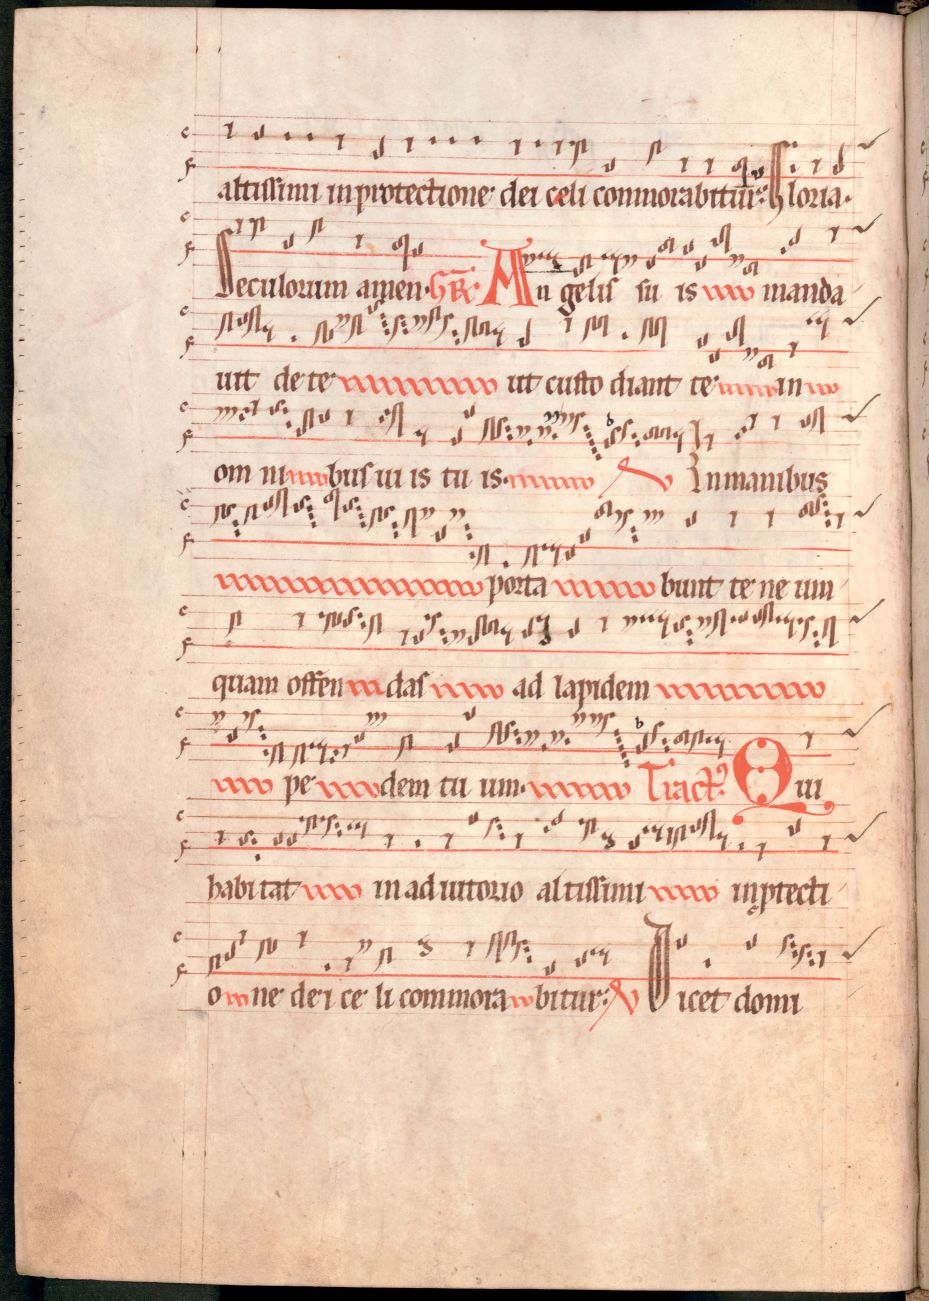 altissimi in protectione dei celi commorabitur: Gloria.
Seculorum amen. GR̄. An gelis su is manda
uit de te ut custo diant te in
om ni bus ui is tu is. V In manibus
porta bunt te ne um
quam offen das ad lapidem
pe dem tu um. Tract9 Qui
habitat in ad iutorio altissimi in ptecti
o ne dei ce li commora bitur: V Dicet domi